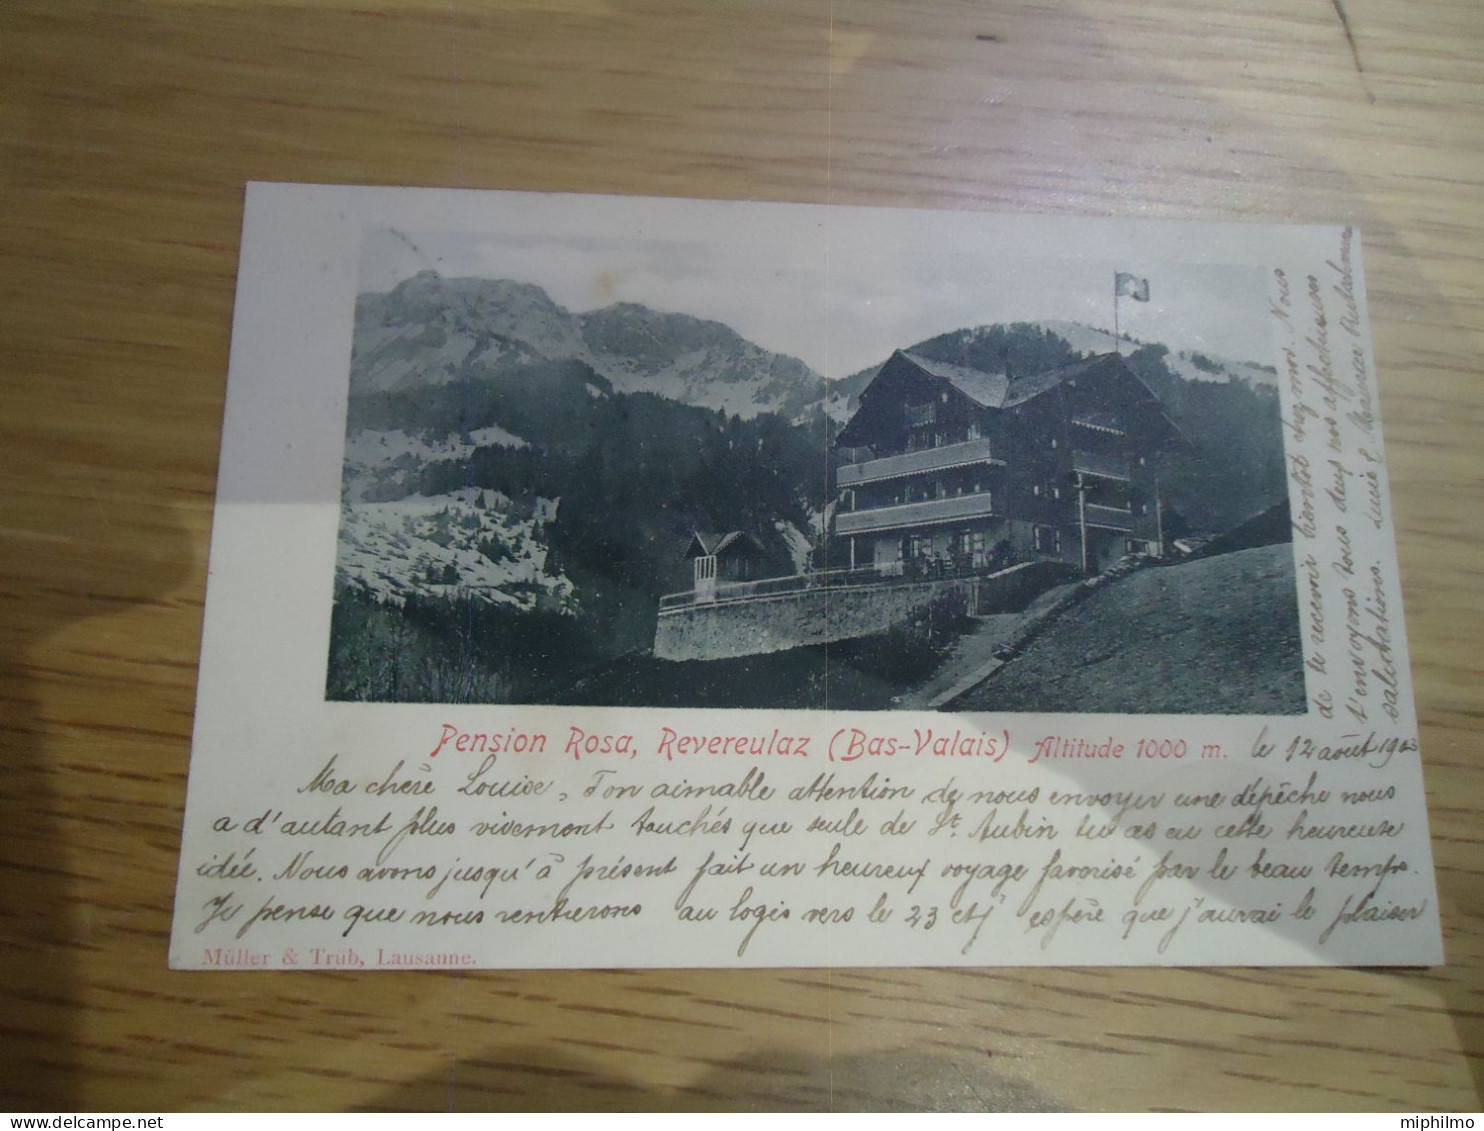 Pension Rosa, Revereulaz (Bas-Valais) Altitude 1000 m.
le 12 août
Ma chère Louise, Ton aimable attention de nous envoyer une dépêche nous
a d'autant plus vivement touchés que seule de St. Aubin tu as eu cette heureuse
idée. Nous avons jusqu'à présent fait un heureux voyage favorisé par le beau temps.
Je pense que nous rentrerons au logis vers le 23 et j'espère que j'aurai le plaisir
de te recevoir bientôt chez moi. Nous
t'envoyons tous deux nos affectueuses
salutations.
Müller & Trüb, Lausanne.
miphilmo